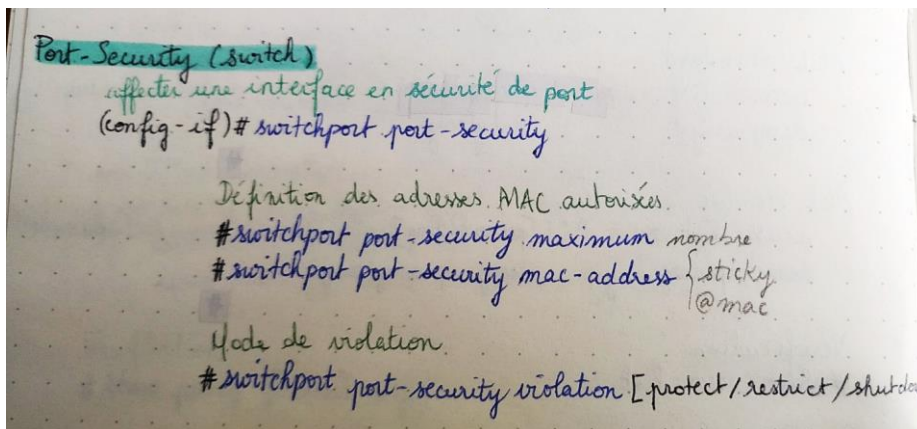 Port-Security (switch)
affecter une interface en sécurité de port
(config-if)# switchport port-security
Définition des adresses MAC autorisées.
#switchport port-security maximum nombre
#switchport port-security mac-address { sticky
@mac
Mode de violation
#switchport port-security violation [protect/restrict/shutdo